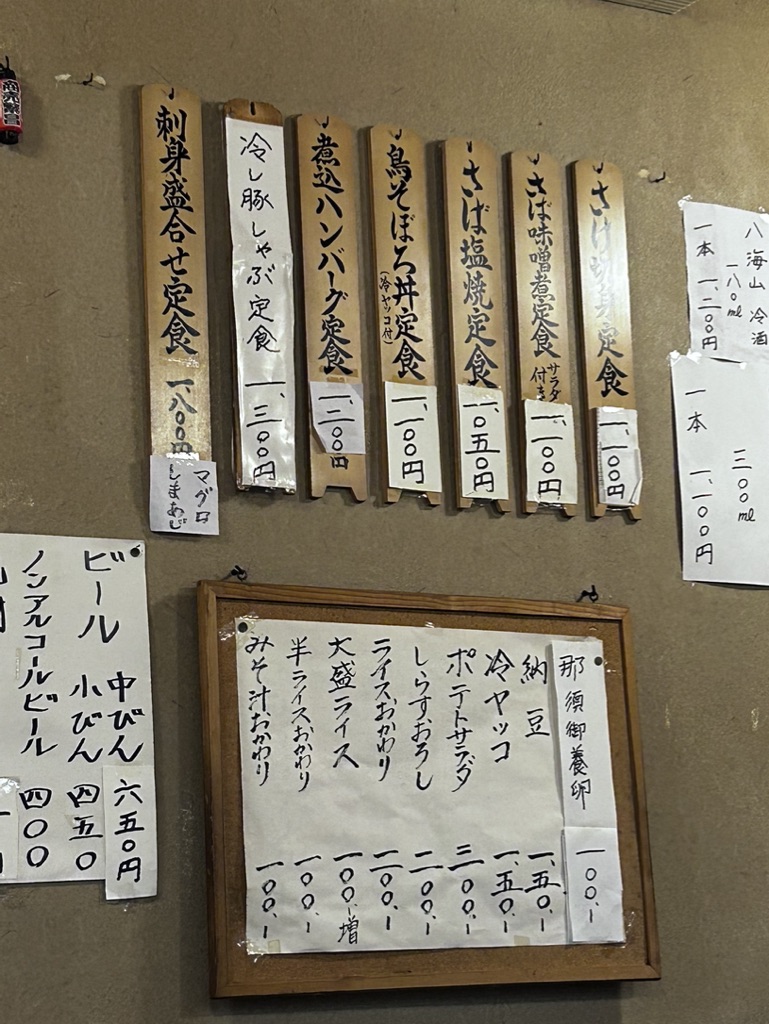 八海山 冷酒
一八〇ml
一本 一、二〇〇円
三〇〇ml
一本 一、一〇〇円
さけ 定食 一、一〇〇円
さば味噌煮定食 サラダ付き 一、一〇〇円
さば塩焼定食 一、〇五〇円
鳥そぼろ丼定食(冷ヤッコ付) 一、一〇〇円
煮込ハンバーグ定食 一、二〇〇円
冷し豚しゃぶ定食 一、三〇〇円
刺身盛合せ定食 一八〇〇円
マグロ
しまあじ
那須御養卵 一〇〇、-
納豆 一、五〇、-
冷ヤッコ 一、五〇、-
ポテトサラダ 三〇〇、-
しらすおろし 二〇〇、-
ライスおかわり 二〇〇、-
大盛ライス 一〇〇、-増
半ライスおかわり 一〇〇、-
みそ汁おかわり 一〇〇、-
ビール 中びん 六五〇円
小びん 四五〇
ノンアルコールビール 四〇〇